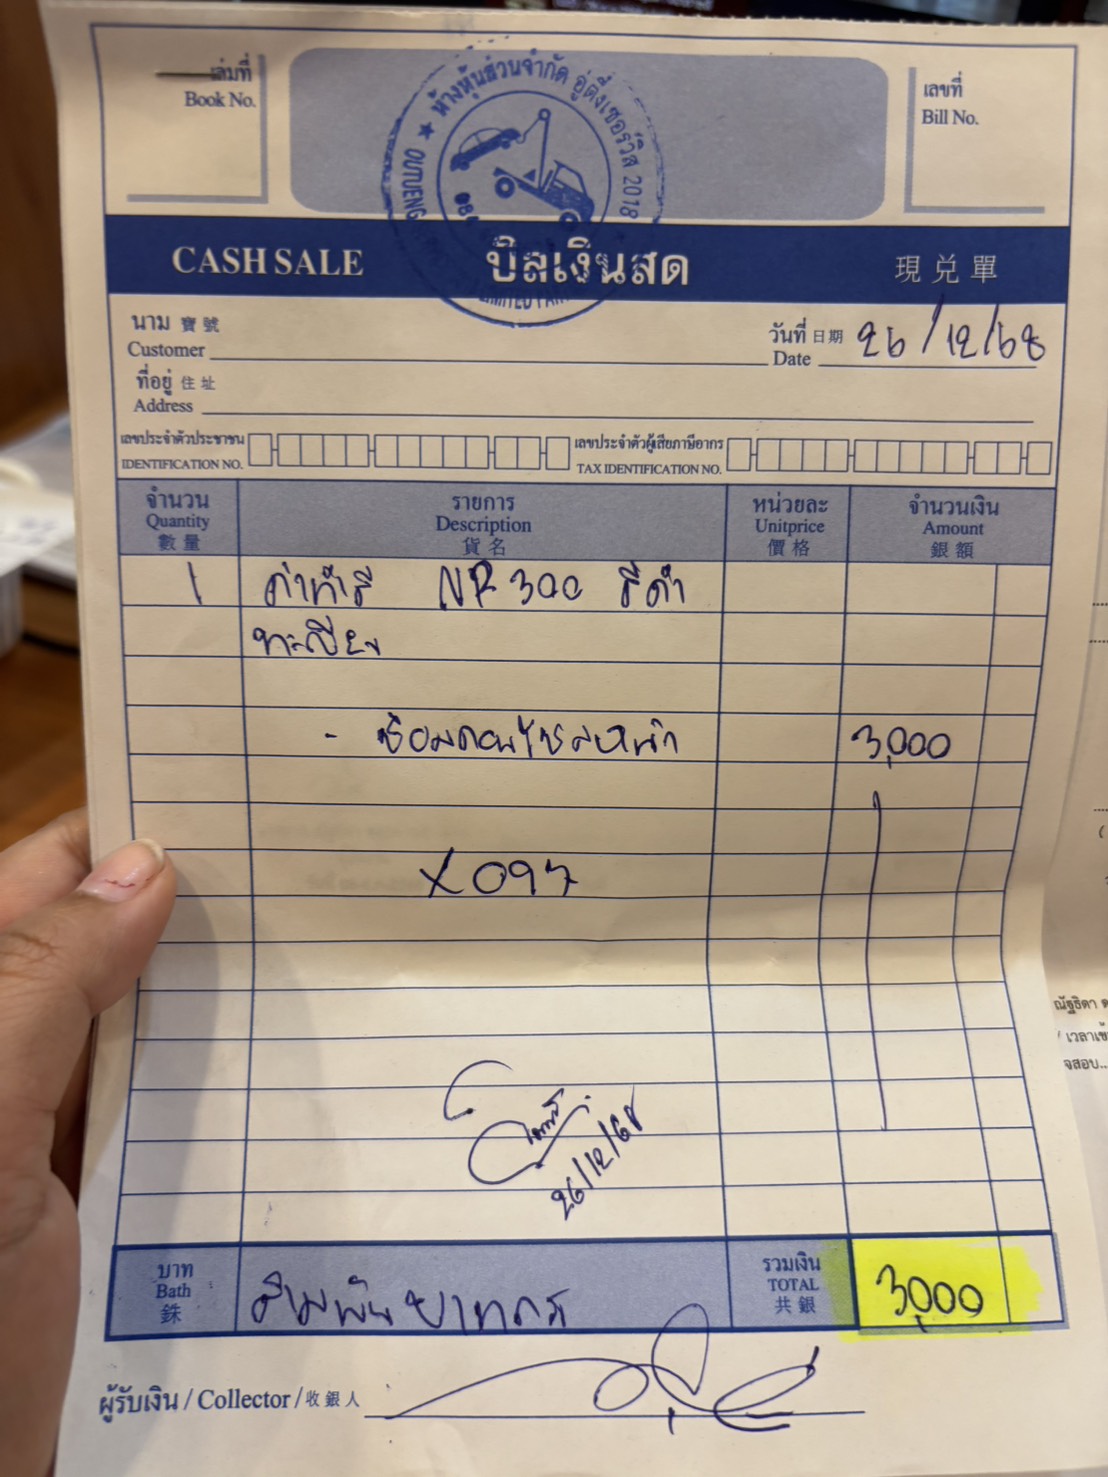 เล่มที่
Book No.
ห้างหุ้นส่วนจำกัด อู่ตึ๋งเซอร์วิส 2018
เลขที่
Bill No.
CASH SALE บิลเงินสด 現兌單
นาม 寶號
Customer
วันที่ 日期 26/12/68
Date
ที่อยู่ 住址
Address
เลขประจำตัวประชาชน
IDENTIFICATION NO.
เลขประจำตัวผู้เสียภาษีอากร
TAX IDENTIFICATION NO.
จำนวน รายการ หน่วยละ จำนวนเงิน
Quantity Description Unitprice Amount
數量 貨名 價格 銀額
1 ค่าทำสี NP 300 สีดำ
ทะเบียน
- ซ่อมคอนโซลหน้า 3,000
X097
26/12/68
บาท
Bath
銖
สามพันบาทถ้วน
รวมเงิน
TOTAL
共銀
3,000
ผู้รับเงิน / Collector / 收銀人
ณัฐธิดา